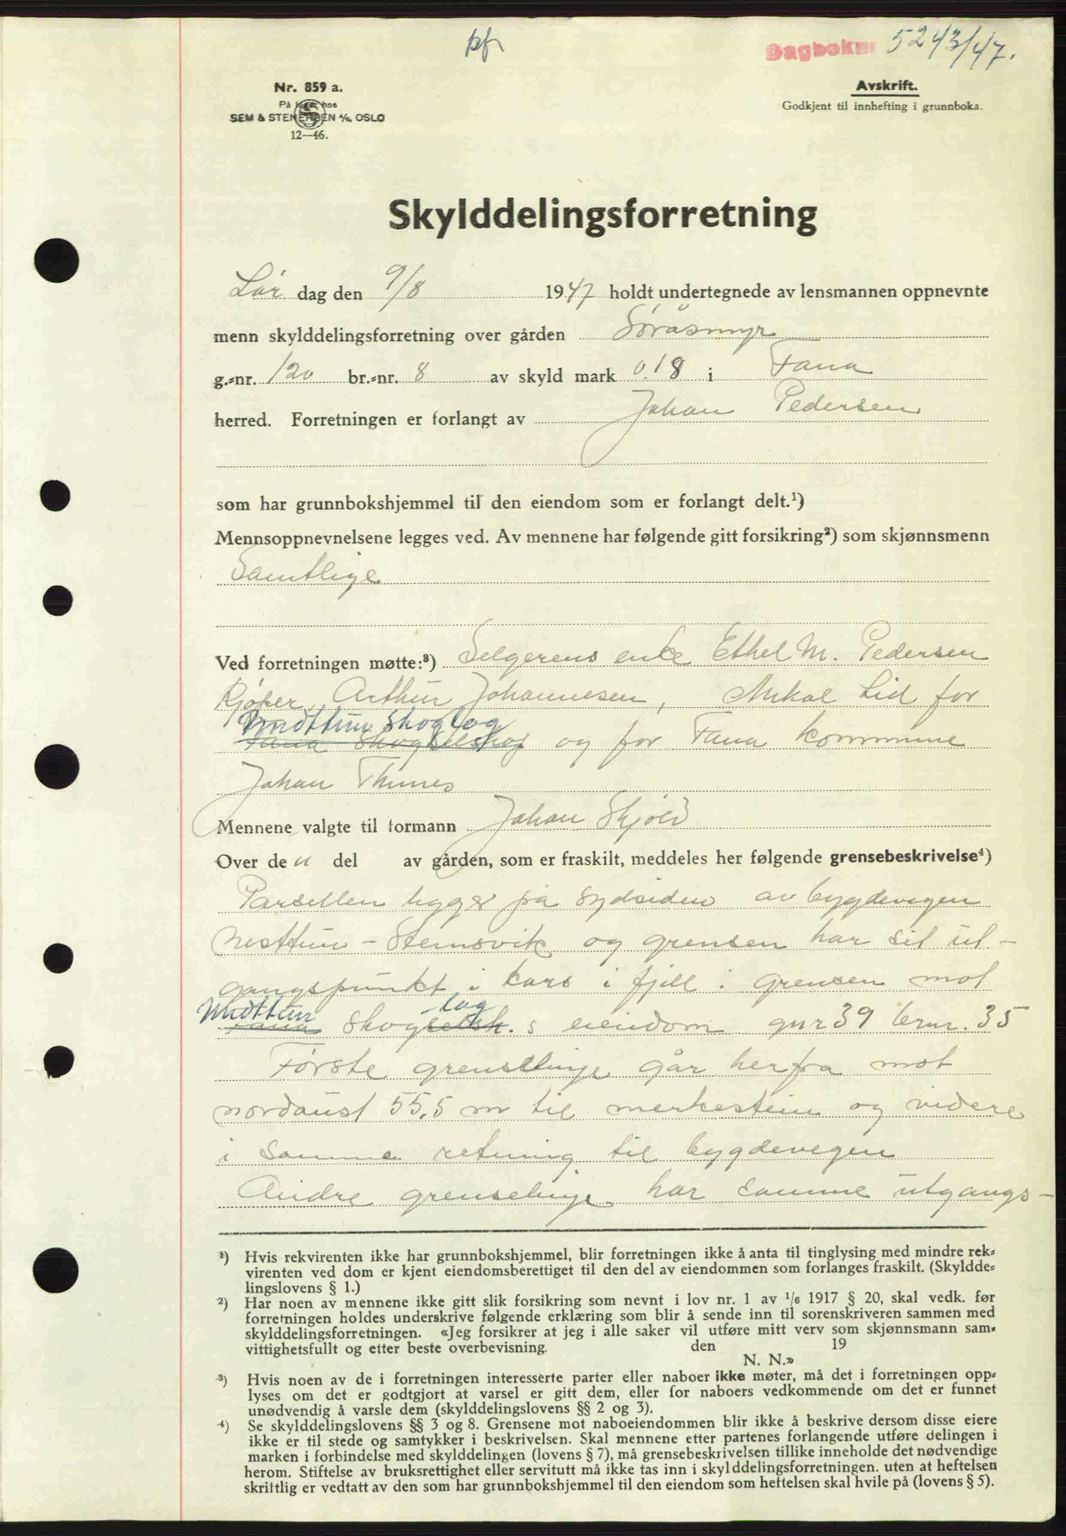 pf
Dagboknr 5243/47.
Nr. 859 a.
På lager hos
SEM & STENERSEN A/S, OSLO
12—46.
Avskrift.
Godkjent til innhefting i grunnboka.
Skylddelingsforretning
Lør dag den 9/8 1947 holdt undertegnede av lensmannen oppnevnte
menn skylddelingsforretning over gården Søråsmyr
g.-nr. 120 br.-nr. 8 av skyld mark 0.18 i Fana
herred. Forretningen er forlangt av Johan Pedersen
som har grunnbokshjemmel til den eiendom som er forlangt delt.¹)
Mennsoppnevnelsene legges ved. Av mennene har følgende gitt forsikring²) som skjønnsmenn
Samtlige
Ved forretningen møtte:³) Selgerens enke Ethel M. Pedersen
Kjøper, Arthur Johannesen, Mikal Lid for
Midttun skoglag
Fana Skogselskap og for Fana kommune
Johan Thunes
Mennene valgte til formann Johan Skjold
Over den del av gården, som er fraskilt, meddeles her følgende grensebeskrivelse⁴)
Parsellen ligger på sydsiden av bygdevegen
Nesttun - Steinsvik og grensen har sit ut-
gangspunkt i kors i fjell i grensen mot
Midttun lag
Fana Skogselsk.s eiendom gnr 39 brnr. 35
Første grenselinje går herfra mot
nordaust 55,5 m til merkestein og videre
i samme retning til bygdevegen
Andre grenselinje har samme utgangs-
¹) Hvis rekvirenten ikke har grunnbokshjemmel, blir forretningen ikke å anta til tinglysing med mindre rek-
virenten ved dom er kjent eiendomsberettiget til den del av eiendommen som forlanges fraskilt. (Skyldde-
lingslovens § 1.)
²) Har noen av mennene ikke gitt slik forsikring som nevnt i lov nr. 1 av 1/6 1917 § 20, skal vedk. før
forretningen holdes underskrive følgende erklæring som blir å sende inn til sorenskriveren sammen med
skylddelingsforretningen. «Jeg forsikrer at jeg i alle saker vil utføre mitt verv som skjønnsmann sam-
vittighetsfullt og etter beste overbevisning. den 19
N. N.»
³) Hvis noen av de i forretningen interesserte parter eller naboer ikke møter, må det i forretningen opp-
lyses om det er godtgjort at varsel er gitt dem, eller for naboers vedkommende om det er funnet
unødvendig å varsle dem (skylddelingslovens §§ 2 og 3).
⁴) Se skylddelingslovens §§ 3 og 8. Grensene mot naboeiendommen blir ikke å beskrive dersom disse eiere
ikke er til stede og samtykker i beskrivelsen. Skal mennene etter partenes forlangende utføre delingen i
marken i forbindelse med skylddelingen (lovens § 7), må grensebeskrivelsen tillike inneholde det nødvendige
herom. Stiftelse av bruksrettighet eller servitutt må ikke tas inn i skylddelingsforretningen. uten at heftelsen
skriftlig er vedtatt av den som har grunnbokshjemmel til den eiendom som heftelsen skal hvile på (lovens § 5).